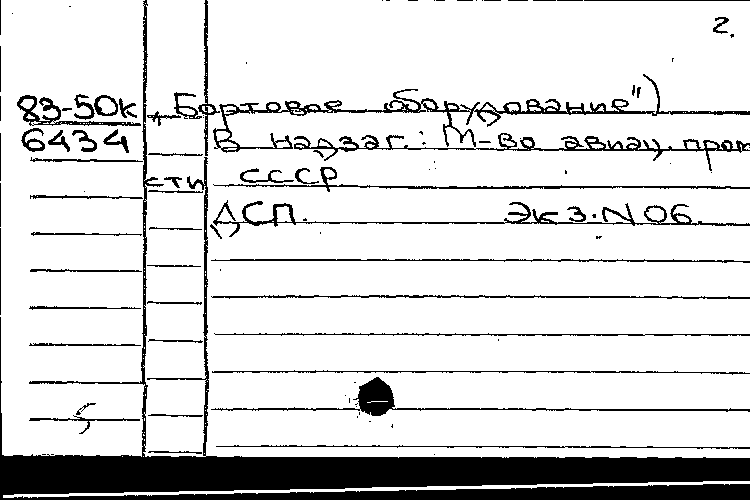 2.
83-50к „Бортовое оборудование")
6434 В надзаг.: М-во авиац. пром
сти СССР
ДСП. Экз. N 06.
5